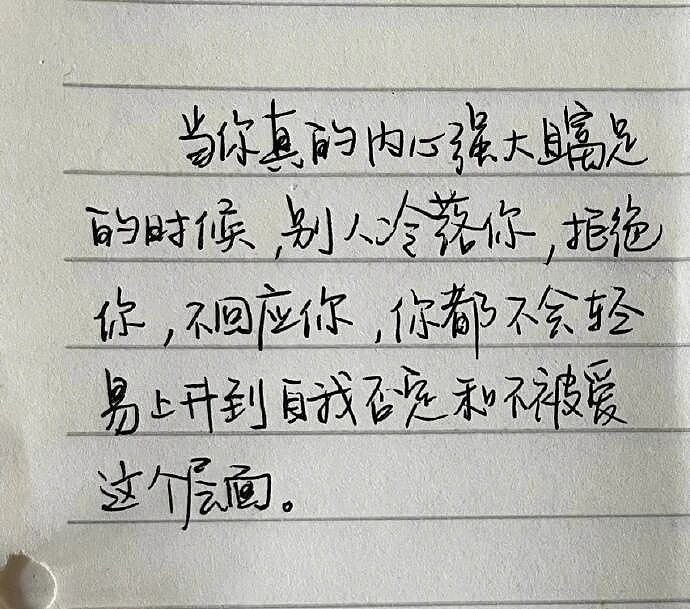 当你真的内心强大且富足
的时候,别人冷落你,拒绝
你,不回应你,你都不会轻
易上升到自我否定和不被爱
这个层面。